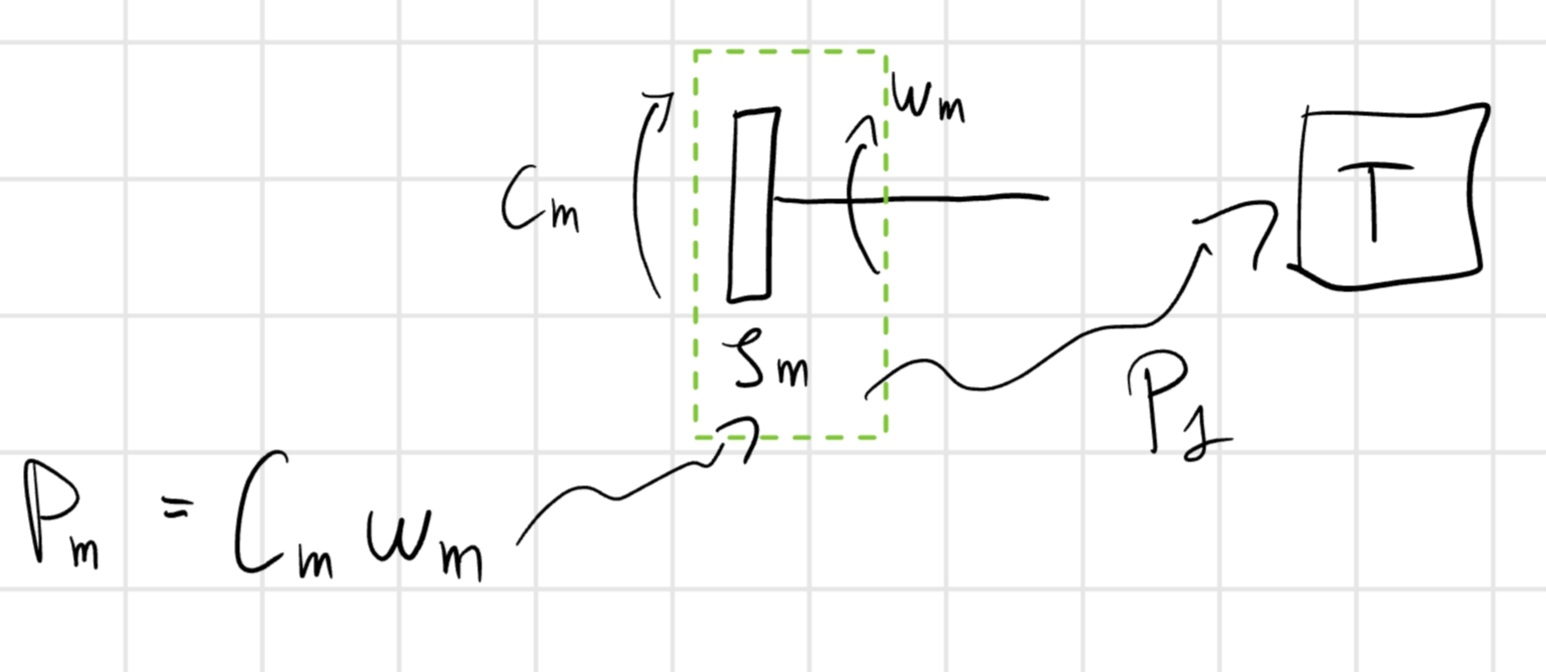 ωm
Cm
T
Jm
P1
Pm = Cm ωm